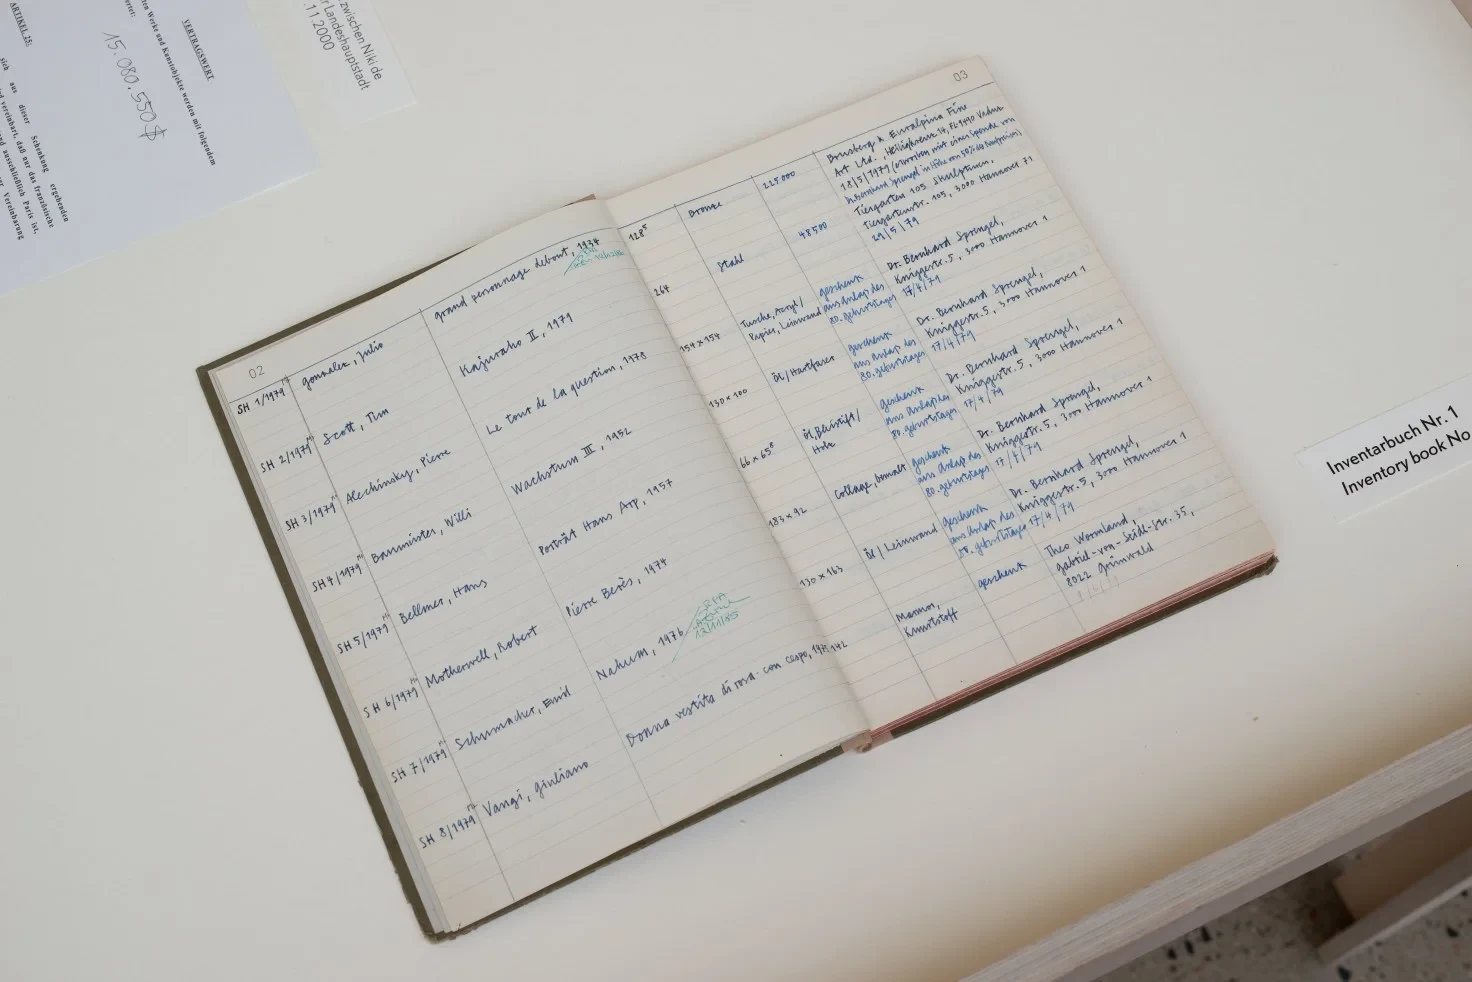 ARTIKEL 25:
sich aus dieser Schenkung ergebenden
vereinbart, daß nur das französische
und ausschließlich Paris ist,
Vereinbarung
VERTRAGSWERT
Werke und Kunstobjekte werden mit folgendem
15.080.550$
zwischen Niki de
Landeshauptstadt
.11.2000
02
SH 1/1979
gonzalez, Julio
grand personnage debout, 1934
SH 2/1979
Scott, Tim
Kajuraho II, 1979
SH 3/1979
Alechinsky, Pierre
Le tour de la question, 1978
SH 4/1979
Baumeister, Willi
Wachstum III, 1952
SH 5/1979
Bellmer, Hans
Porträt Hans Arp, 1957
SH 6/1979
Motherwell, Robert
Pierre Berès, 1974
SH 7/1979
Schumacher, Emil
Nahum, 1976
12/11/85
SH 8/1979
Vangi, Giuliano
Donna vestita di rosa con cespo,
03
128⁵
Bronze
225.000
Brusberg & Euralpina Fine
Art Ltd., Heiligkreuz 14, FL-9490 Vaduz
18/5/1979 (erworben mit einer Spende von
Dr. Bernhard Sprengel in Höhe von 50% des Kaufpreises)
264
Stahl
48500
Tiergarten 105 Skulpturen,
Tiergartenstr. 105, 3000 Hannover 71
29/5/79
154 x 154
Tusche, Acryl/
Papier, Leinwand
geschenk
aus Anlaß des
80. geburtstages
Dr. Bernhard Sprengel,
Kniggestr. 5, 3000 Hannover 1
17/4/79
130 x 100
Öl/Hartfaser
geschenk
aus Anlaß des
80. geburtstages
Dr. Bernhard Sprengel,
Kniggestr. 5, 3000 Hannover 1
17/4/79
66 x 65⁸
Öl, Bleistift/
Holz
geschenk
aus Anlaß des
80. geburtstages
Dr. Bernhard Sprengel,
Kniggestr. 5, 3000 Hannover 1
17/4/79
183 x 92
Collage,
geschenk
aus Anlaß des
80. geburtstages
Dr. Bernhard Sprengel,
Kniggestr. 5, 3000 Hannover 1
17/4/79
130 x 163
Öl/Leinwand
geschenk
aus Anlaß des
80. geburtstages
Dr. Bernhard Sprengel,
Kniggestr. 5, 3000 Hannover 1
17/4/79
142
Marmor,
Kunststoff
geschenk
Theo Wormland,
gabriel-von-Seidl-Str. 35,
8022 Grünwald
Inventarbuch Nr. 1
Inventory book No